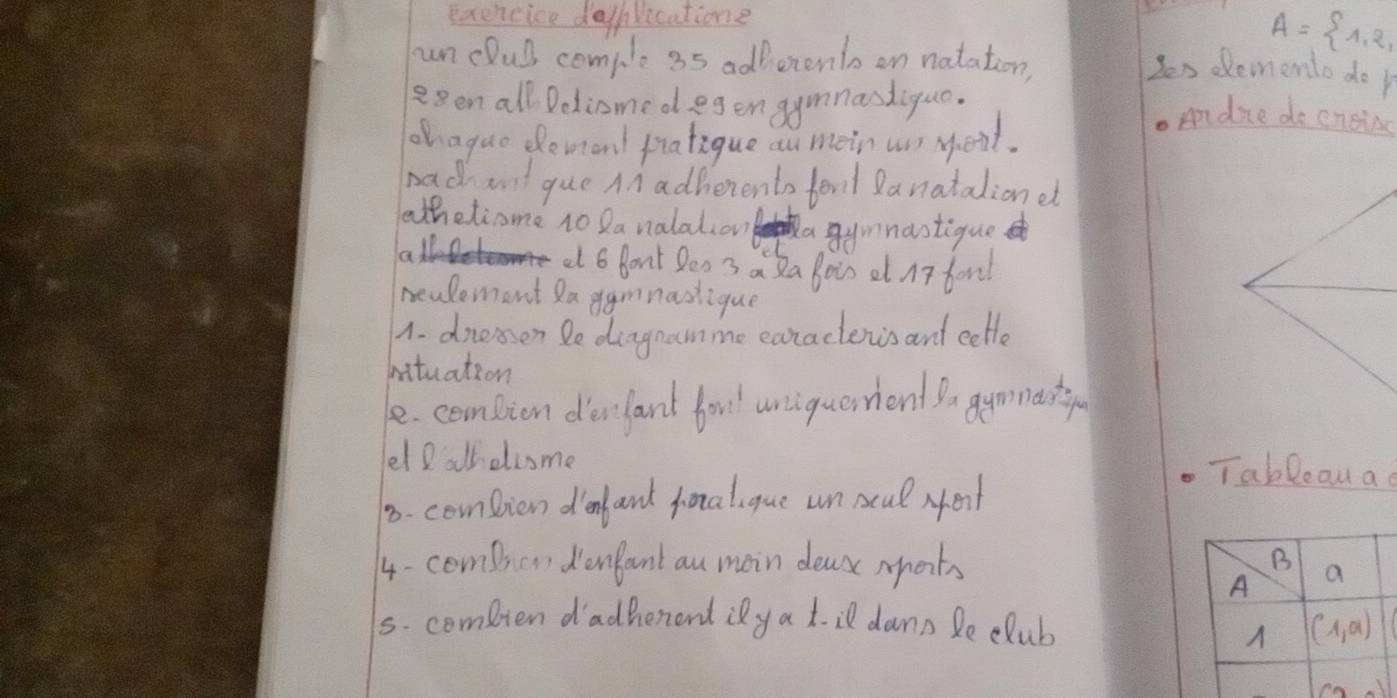 Exercice d'applications
un club compte 35 adherents en natation,
28 en athletisme et 29 en gymnastique.
chaque element pratique au moin un sport.
sachant que 11 adherents font la natation et
athetisme 10 la natation et la gymnastique
et 6 font les 3 a la fois et 17 font
seulement la gymnastique
1- dresser le diagramme caracterisant cette
situation
2- combien d'enfant font uniquement la gymnastique
et l'athelisme
3- combien d'enfant pratique un seul sport
4- combien d'enfant au moin deux sports
5- combien d'adherent il y a t-il dans le club
A = {1,2,
Les elements de
• Andre de crois
• Tableau a
B a
A
1 (1,a)